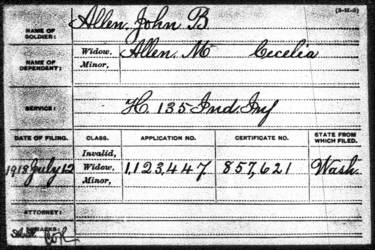 (3-H-8)
NAME OF SOLDIER: Allen, John B
NAME OF DEPENDENT: Widow, Allen, M Cecelia
Minor,
SERVICE: H. 135 Ind. Inf
DATE OF FILING. CLASS. APPLICATION NO. CERTIFICATE NO. STATE FROM WHICH FILED.
Invalid,
1918 July 12 Widow, 1,123,447 857,621 Wash.
Minor,
ATTORNEY:
REMARKS: